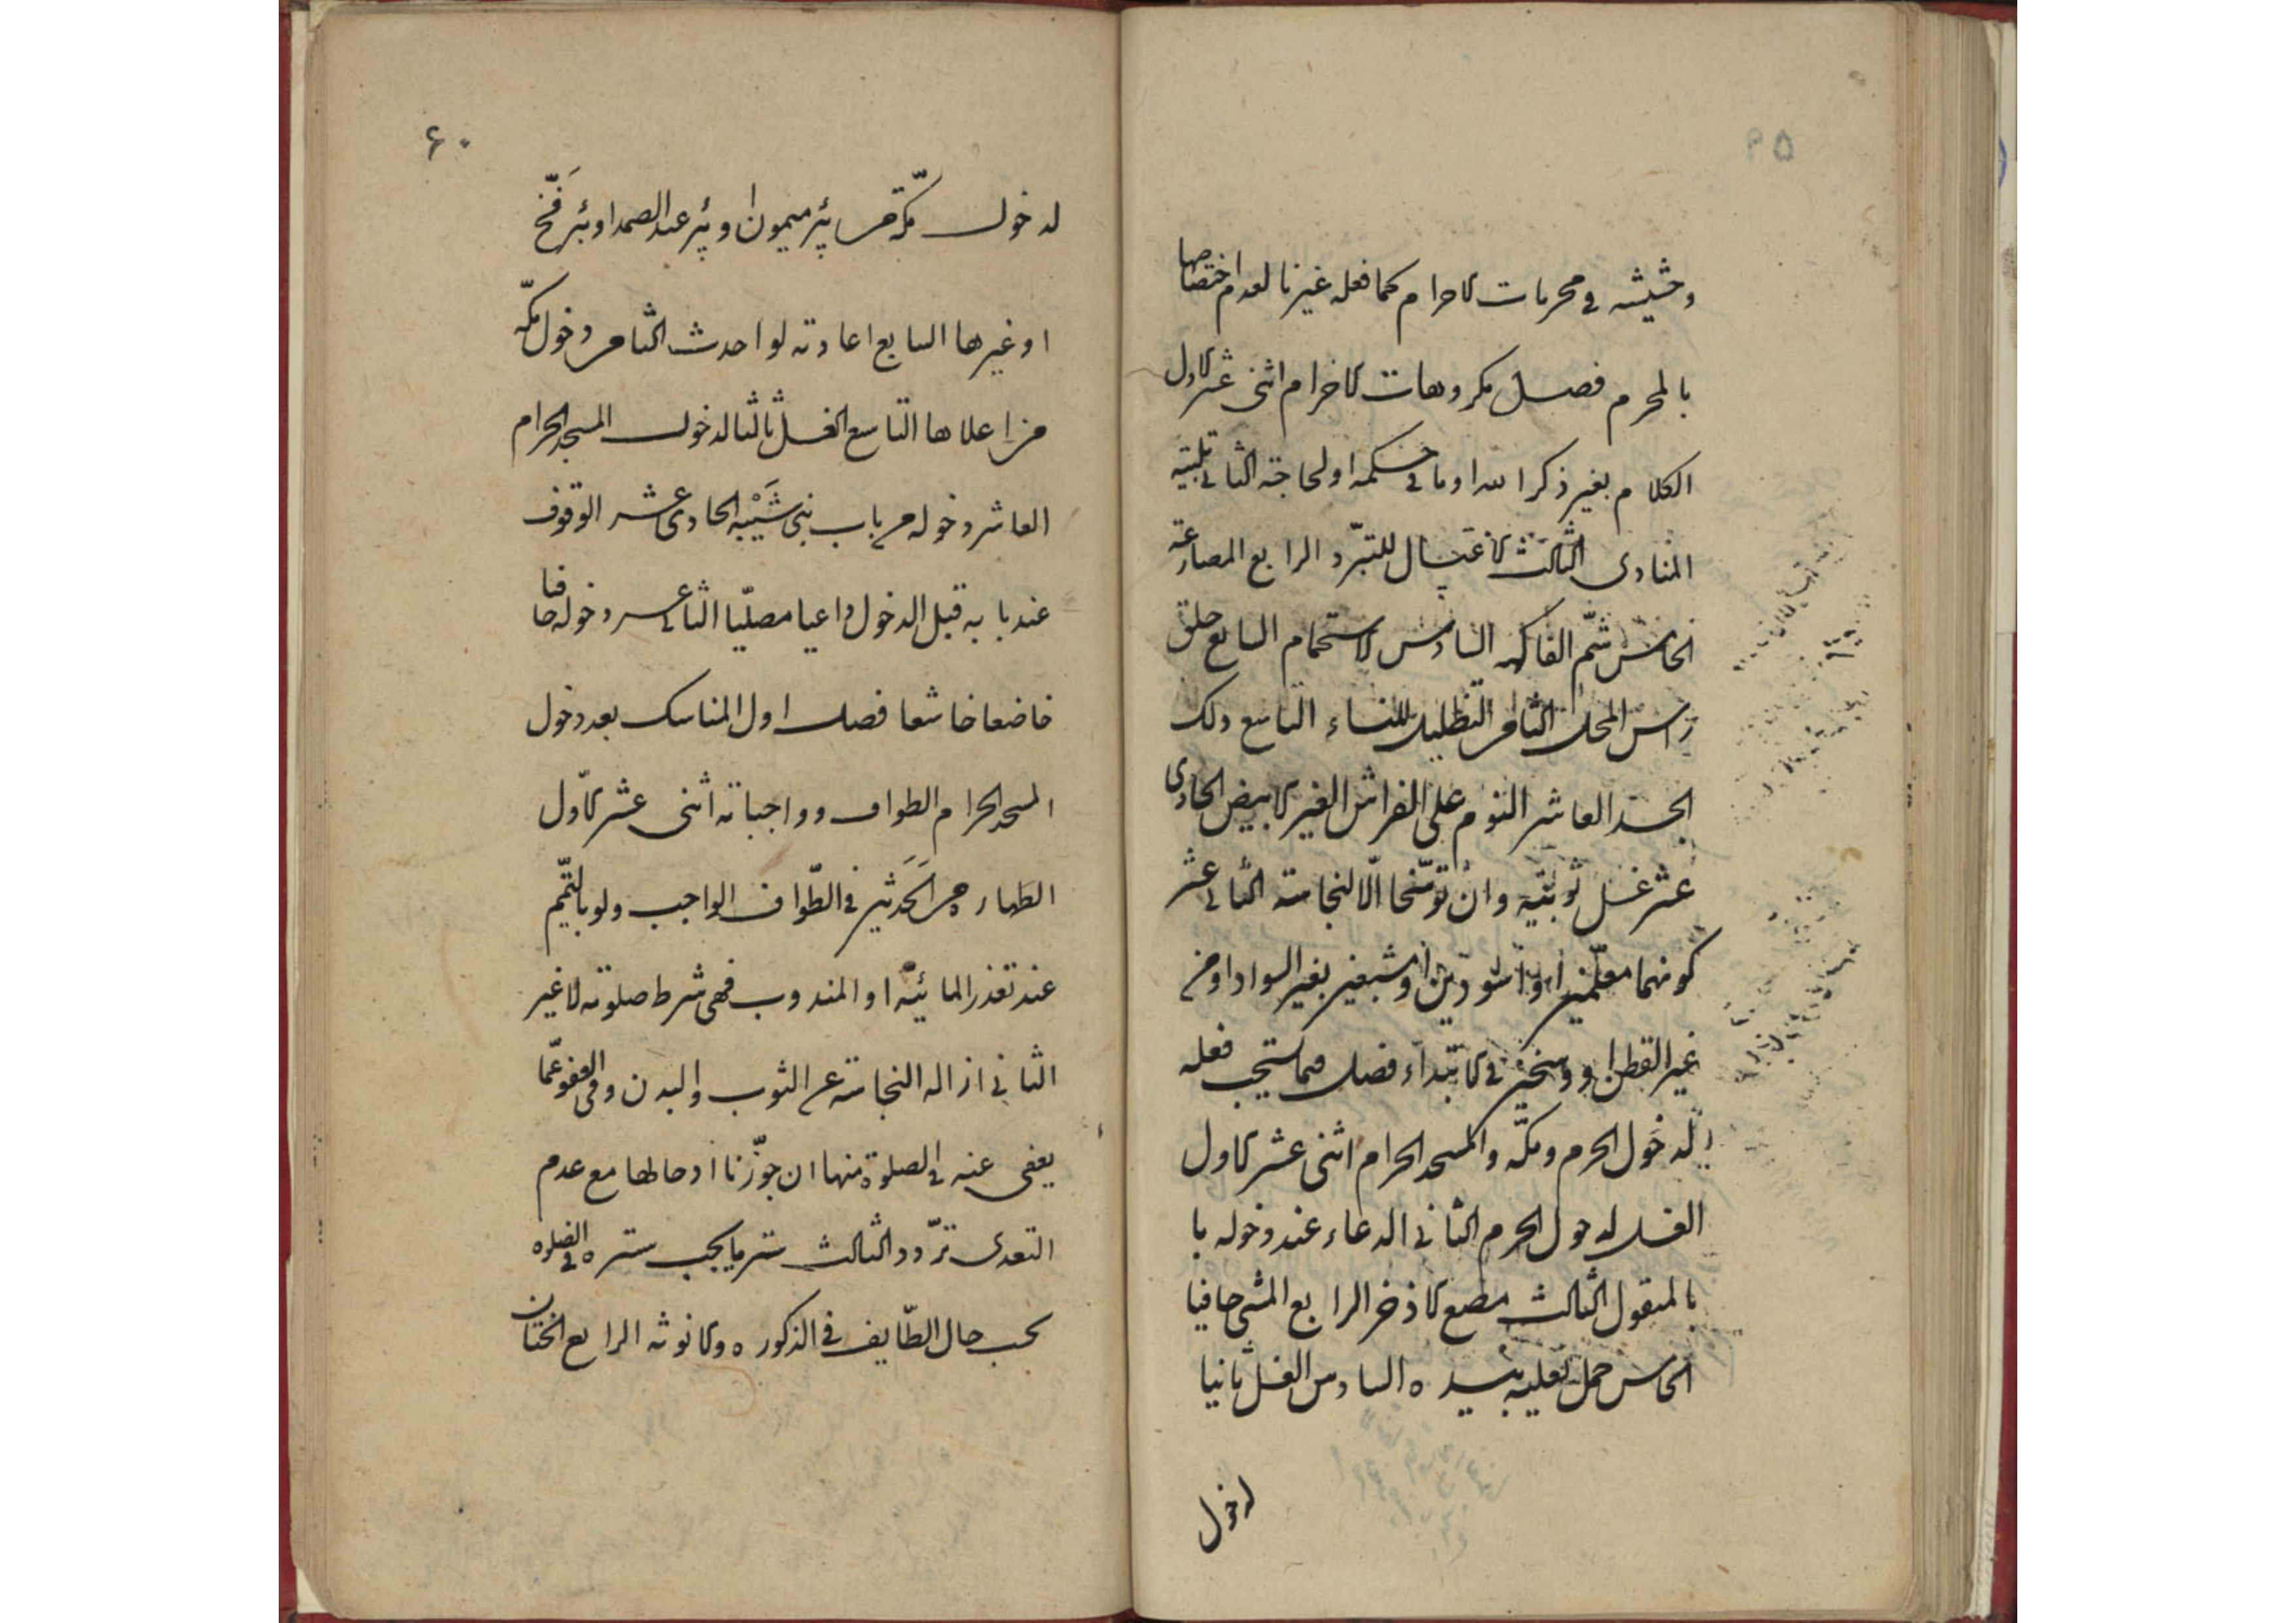 وحشيشه في محرمات الاحرام كما فعله غيرنا لعدم اختصاصها
بالمحرم فصل مكروهات الاحرام اثنى عشر الاول
الكلام بغير ذكر الله او ما في حكمه او لحاجة الثاني تلبية
المنادى الثالث الاغتسال للتبرّد الرابع المصارعة
الخامس شمّ الفاكهه السادس الاستحمام السابع حلق
راس المحل الثامن التظليل للنساء التاسع دلك
الجسد العاشر النوم على الفراش الغير الابيض الحادى
عشر غسل ثوبيّه وان توسّخا الّا لنجاسة الثاني عشر
كونهما معلّمين او اسودين او مشبعين بغير السواد او من
غير القطن او وسخين في الابتداء فصل فيما يستحب فعله
لدخول الحرم ومكّة والمسجد الحرام اثنى عشر الاول
الغسل لدخول الحرم الثاني الدعاء عند دخوله با
بالمنقول الثالث مضغ الاذخر الرابع المشى حافيا
الخامس حمل نعليه بيده السادس الغسل ثانيا
لدخول
۶۰
لدخول مكّة من بئر ميمون او بئر عبد الصمد او بئر فَخّ
او غيرها السابع اعادته لو احدث الثامن دخول مكّه
من اعلاها التاسع الغسل ثالثا لدخول المسجد الحرام
العاشر دخوله من باب بنى شَيْبه الحادى عشر الوقوف
عند بابه قبل الدخول داعيا مصلّيا الثاني عشر دخوله حافيا
خاضعا خاشعا فصل اول المناسك بعد دخول
المسجد الحرام الطواف وواجباته اثنى عشر الاوّل
الطهارة من الحَدَثين في الطّواف الواجب ولو بالتيمّم
عند تعذر المائيّه او المندوب فهى شرط صلوته لا غير
الثاني ازاله النجاسة عن الثوب والبدن وفي العفو عمّا
يعفى عنه في الصلوة منها ان جوّزنا ادخالها مع عدم
التعدى تردّد الثالث ستر ما يجب ستره في الصلوه
بحسب حال الطّايف في الذكوره والانوثه الرابع الختان